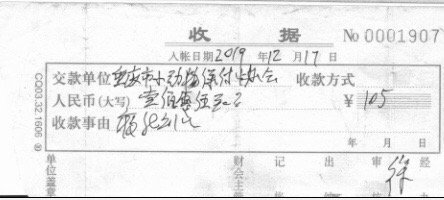 收 据 № 0001907
入帐日期 2019 年 12 月 17 日
交款单位 重庆市小动物 协会 收款方式
人民币(大写) 壹佰零伍元 ¥ 105
收款事由
年 月 日
CQ03.32.1606 ③
单位盖章 财会主管 记 出 审 徐 经